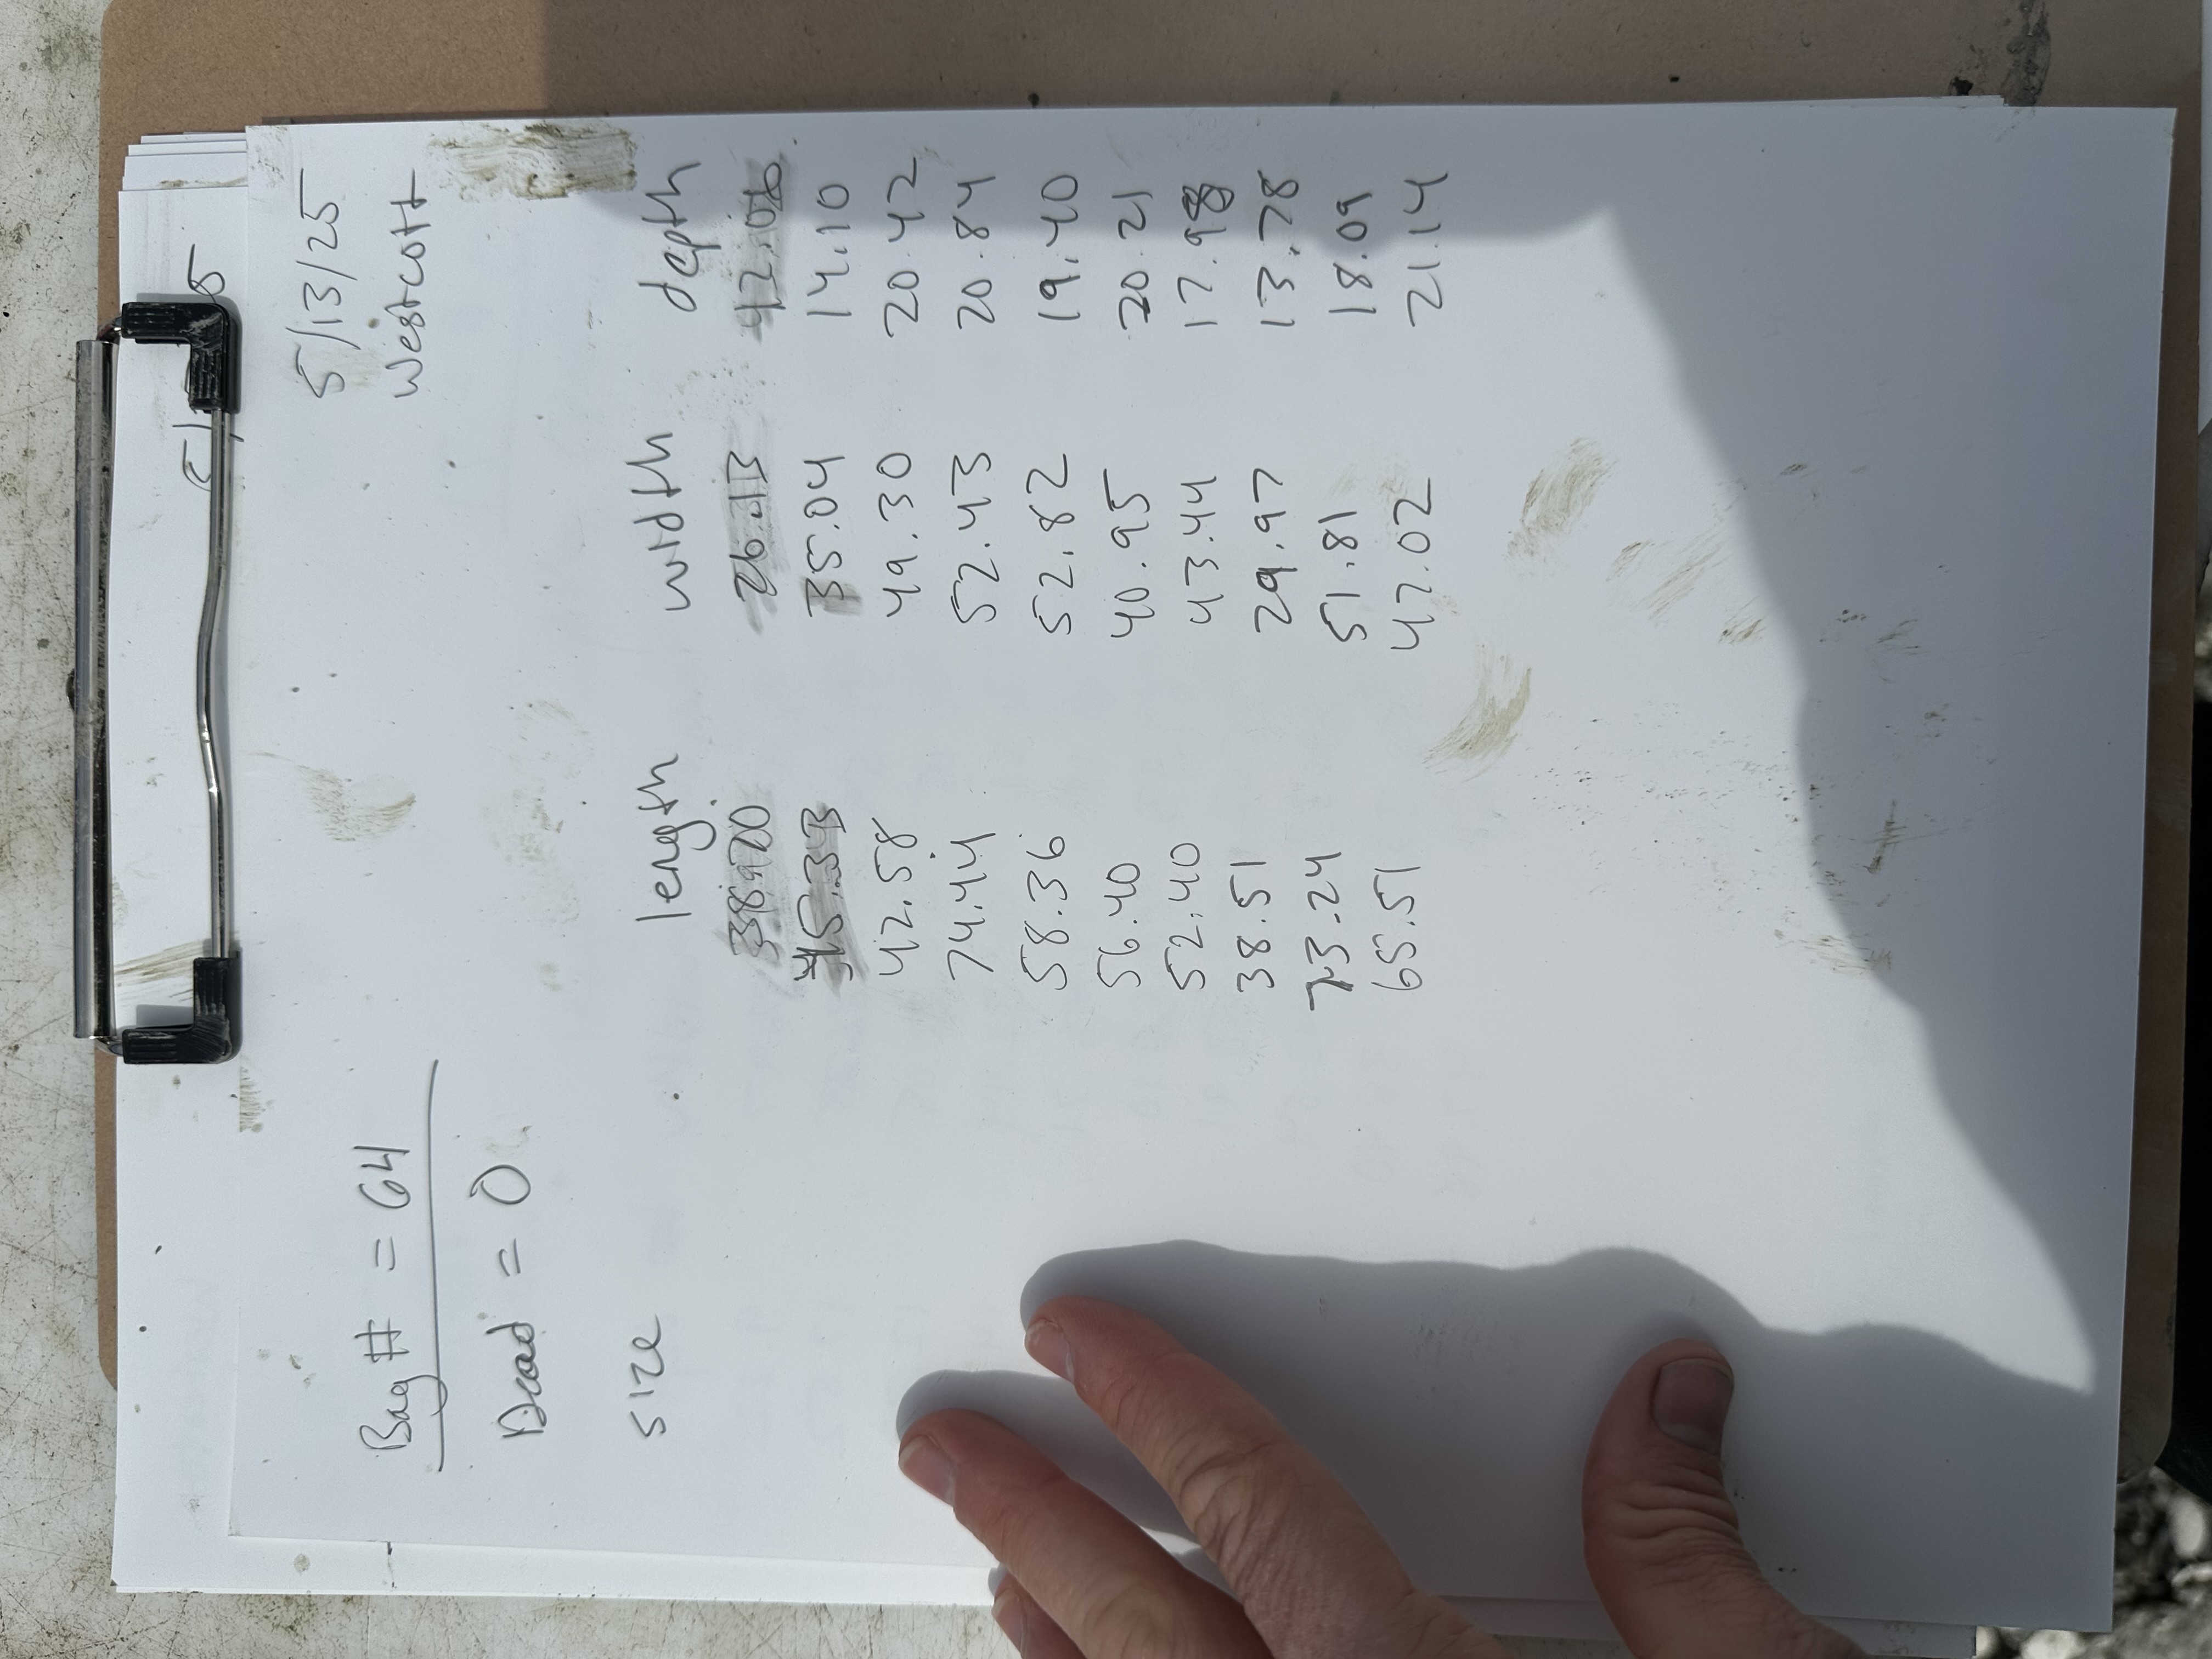 5/13/25
Westcott
Bag # = 64
Dead = 0
size length width depth
38.20 26.13 12.06
45.33 35.04 14.10
42.58 49.30 20.42
74.44 52.43 20.84
58.36 52.82 19.40
56.40 40.95 20.21
52.40 43.44 17.98
38.51 29.97 13.78
73.24 51.81 18.09
65.51 47.02 21.14